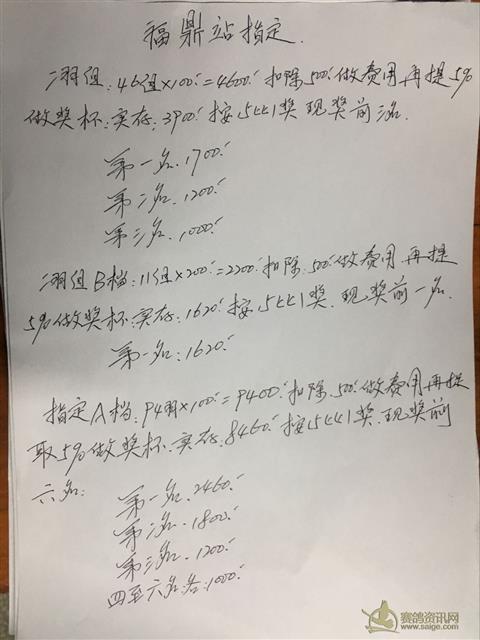 福鼎站指定.
二羽组:46组×100=4600 扣除500做费用再提5%
做奖杯.实存:3900 按15比1奖 现奖前三名.
第一名.1700
第二名.1200
第三名.1000
二羽组B档:11组×200=2200 扣除500做费用.再提
5%做奖杯.实存:1620 按15比1奖.现奖前一名.
第一名:1620
指定A档:94羽×100=9400 扣除500做费用再提
取5%做奖杯.实存:8460 按15比1奖.现奖前
六名:
第一名.2460
第二名.1800
第三名.1200
四至六名各:1000
赛鸽资讯网
www.saige.com